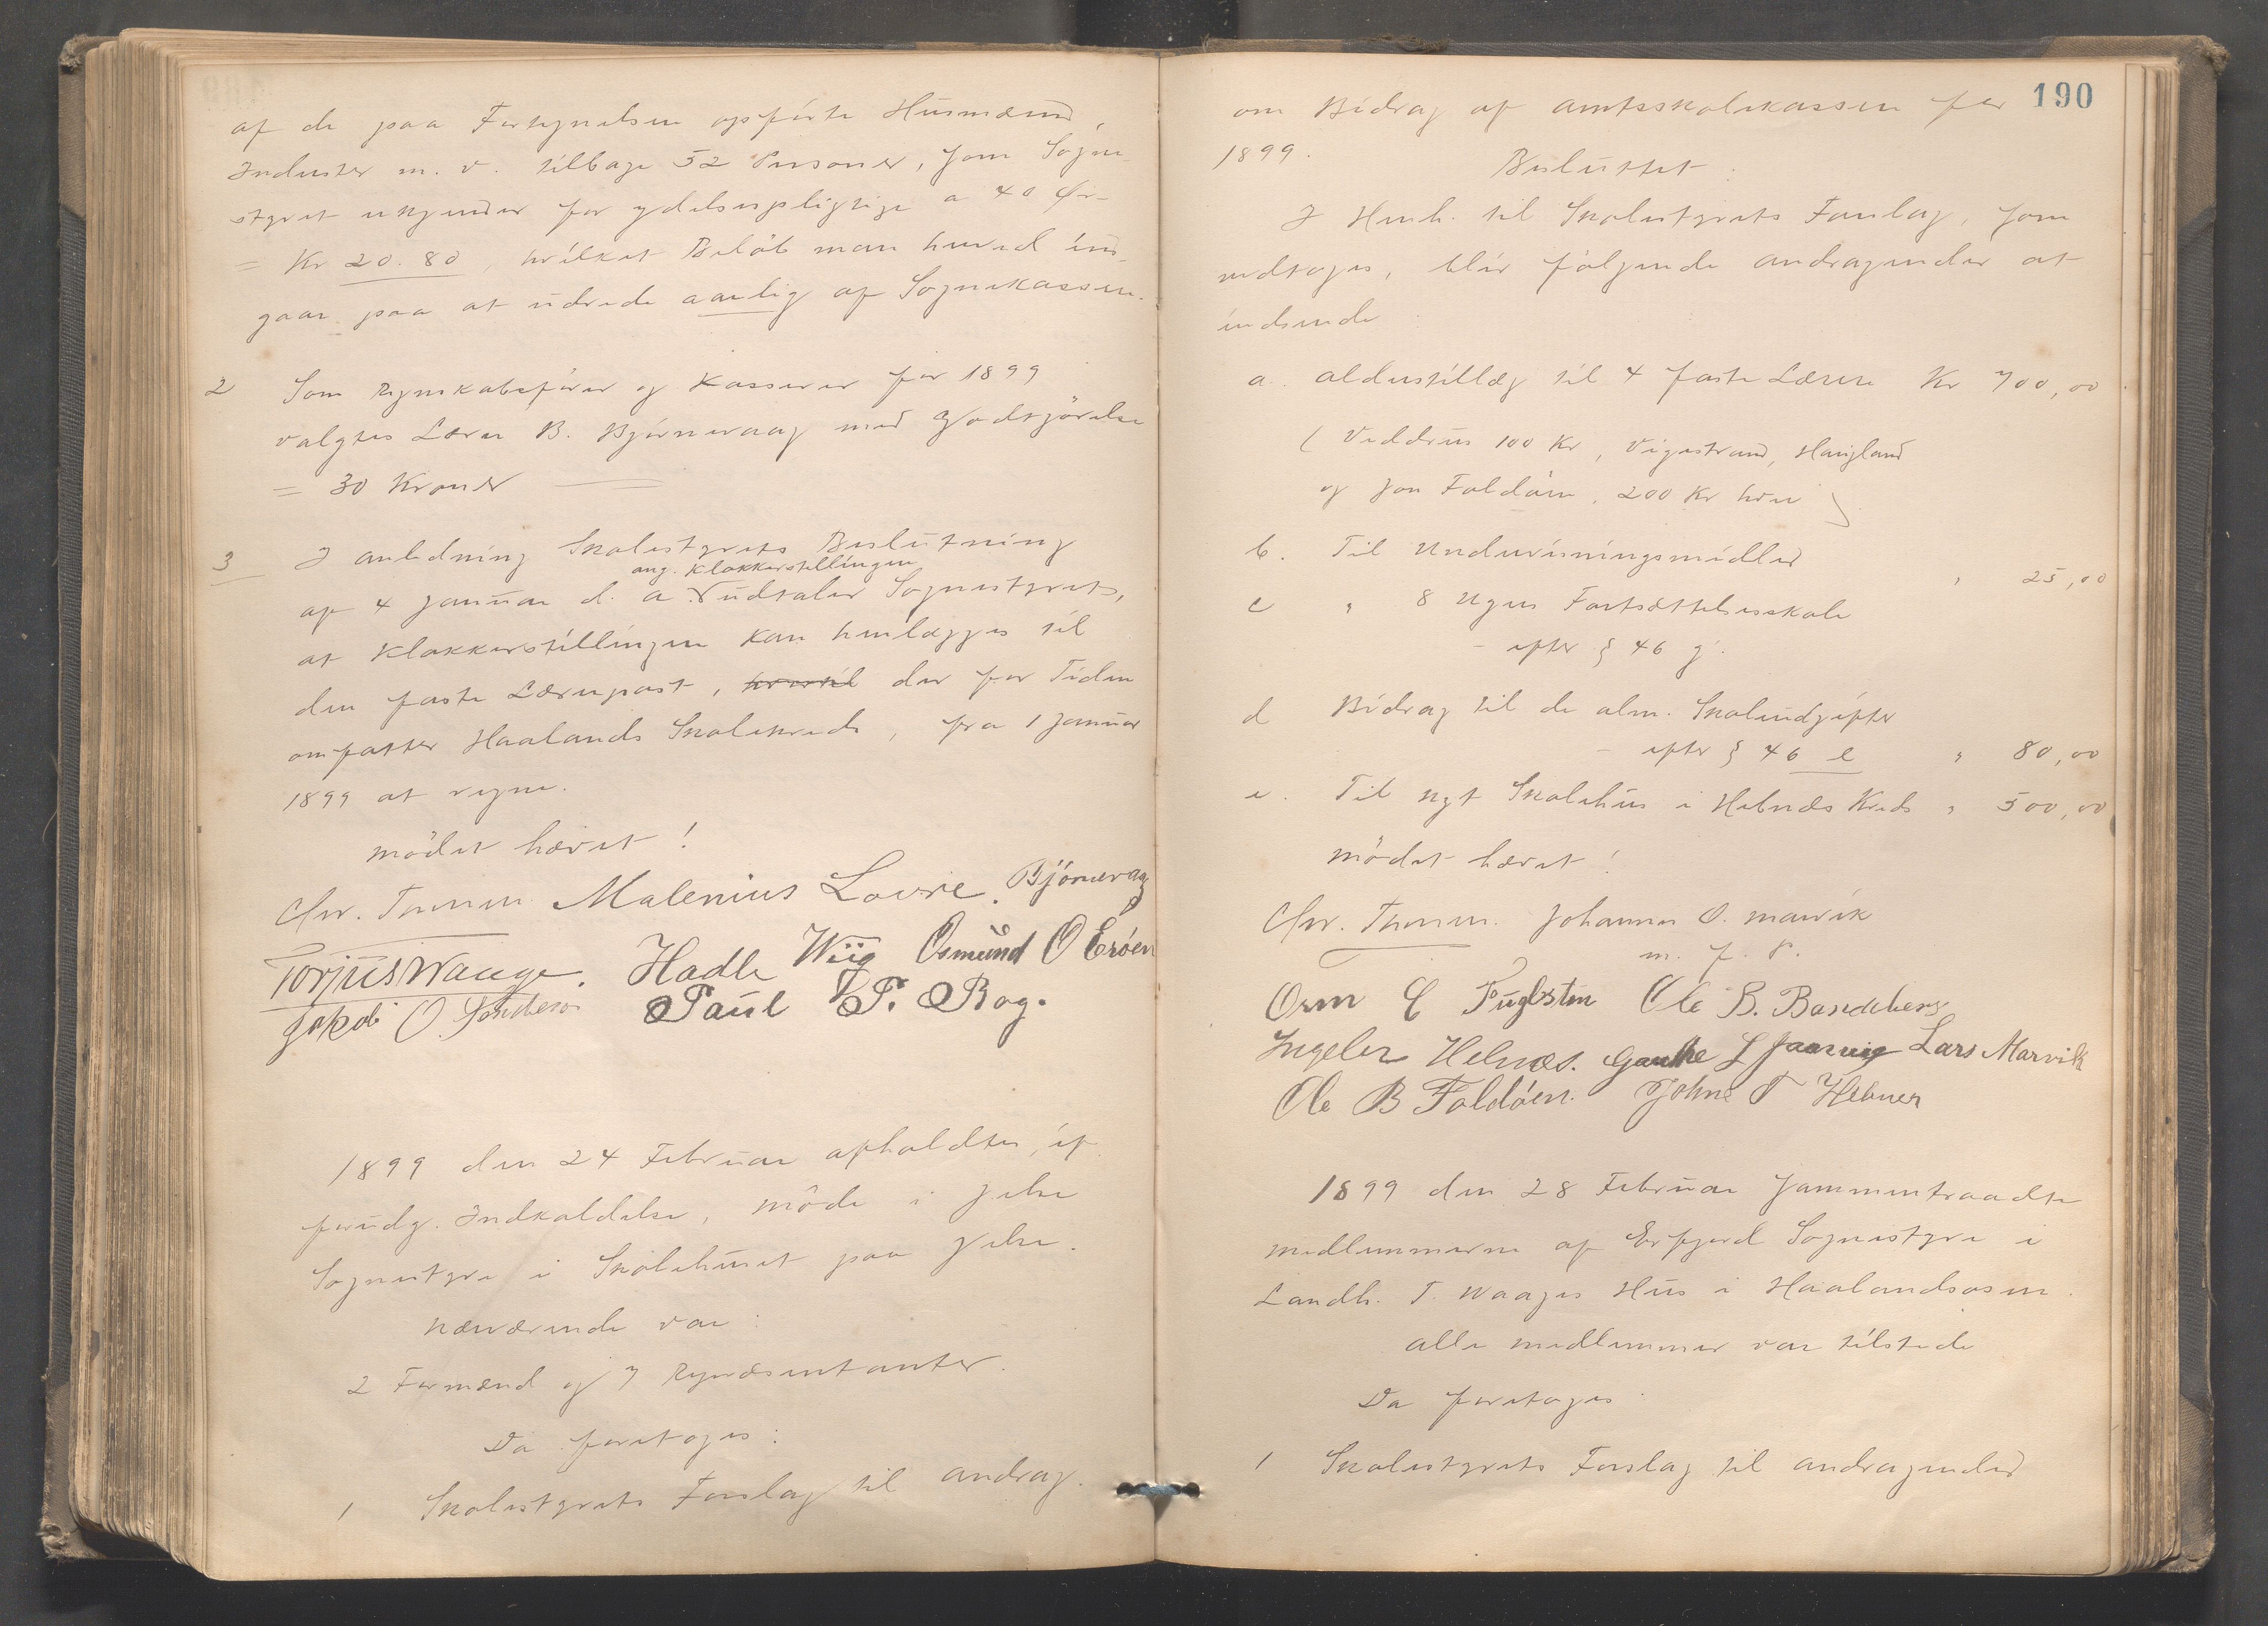 af de paa Fortegnelsen opførte Husmænd,
Inderster m. v. tilbage 52 Personer, som Sogne-
styret erkjender for ydelsespligtige a 40 Øre
= Kr 20.80, hvilket Beløb man herved ind-
gaar paa at udrede aarlig af Sognekassen.
2 Som Regnskabsfører og Kasserer for 1899
valgtes Lærer B. Bjørnevaag med Godtgjörelse
= 30 Kroner
3 I anledning Skolestyrets Beslutning
ang. Klokkerstillingen
af 4 Januar d. a. udtaler Sognestyret,
at Klokkerstillingen kan henlægges til
den faste Lærerpost, hvortil der for Tiden
omfatter Haalands Skolekreds, fra 1 Januar
1899 at regne.
mödet hævet!
Chr. Tormen. Malenius Lovre. Bjönevaag
Torjus Waage. Hadle Wiig Osmund O Erøen
Jakob O. Paul P. Bog.
1899 den 24 Februar afholdtes, ef.
forudg. Indkaldelse, möde i Jelse
Sognestyre i Skolehuset paa Jelse.
Nærværende var:
2 Formænd og 7 Repræsentanter.
Da foretoges:
1 Skolestyrets Forslag til andrag.
190
om Bidrag af amtsskolekassen for
1899.
Besluttet:
I Henh. til Skolestyrets Forslag, som
vedtoges, blir følgende andragender at
indsende:
a. alderstillæg til 4 faste Lærere Kr 700,00
(Veddrus 100 Kr, Vigestrand, Haugland
og Jon Foldöen, 200 Kr hver)
b. Til Undervisningsmidler " 25,00
c " 8 Ugers Fortsættelsesskole
- efter § 46 g.
d Bidrag til de alm. Skoleudgifter
- efter § 46 e " 80,00
e. Til nyt Skolehus i Hebnæs Kreds " 500,00
mödet hævet!
Chr. Tormen. Johannes O. marvik
m. f. P.
Orm E Fuglsten Ole B. Bandeberg
Ingeler Hebnæs. Gauthe L Jaasvig Lars Marvik
Ole B Foldøen. John T Hebnes
1899 den 28 Februar sammentraadte
medlemmerne af Erfjord Sognestyre i
Landh. T. Waages Hus i Haalandsosen.
alle medlemmer var tilstede
Da foretoges:
1 Skolestyrets Forslag til andragender